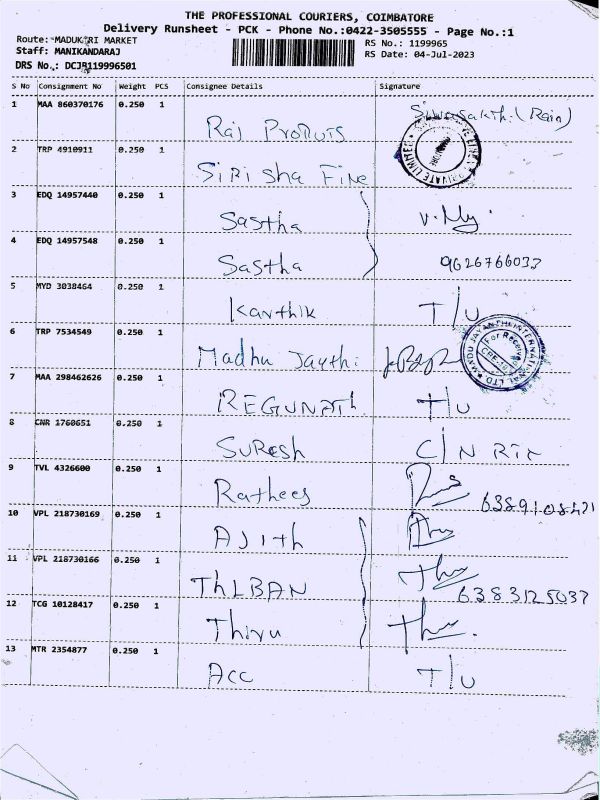 THE PROFESSIONAL COURIERS, COIMBATORE
Delivery Runsheet - PCK - Phone No.:0422-3505555 - Page No.:1
Route: MADUKARI MARKET RS No.: 1199965
Staff: MANIKANDARAJ RS Date: 04-Jul-2023
DRS No.: DCJB119996501
S No Consignment No Weight PCS Consignee Details Signature
1 MAA 860370176 0.250 1 Raj Products Sivasakthi (Rain)
2 TRP 4910911 0.250 1 Sirisha Fine
PRIVATE LIMITED
3 EDQ 14957440 0.250 1 Sastha
4 EDQ 14957548 0.250 1 Sastha 9626766033
5 MYD 3038464 0.250 1 Karthik T/U
6 TRP 7534549 0.250 1 Madhu Jaythi
MADU JAYANTHI INTERNATIONAL LTD. For Receive
7 MAA 298462626 0.250 1 REGUNATH T/U
8 CNR 1760651 0.250 1 SURESH C/N RTR
9 TVL 4326600 0.250 1 Rathees 6389108421
10 VPL 218730169 0.250 1 AJith
11 VPL 218730166 0.250 1 THLBAN 6383125037
12 TCG 10128417 0.250 1 Thiru
13 MTR 2354877 0.250 1 Acc T/U